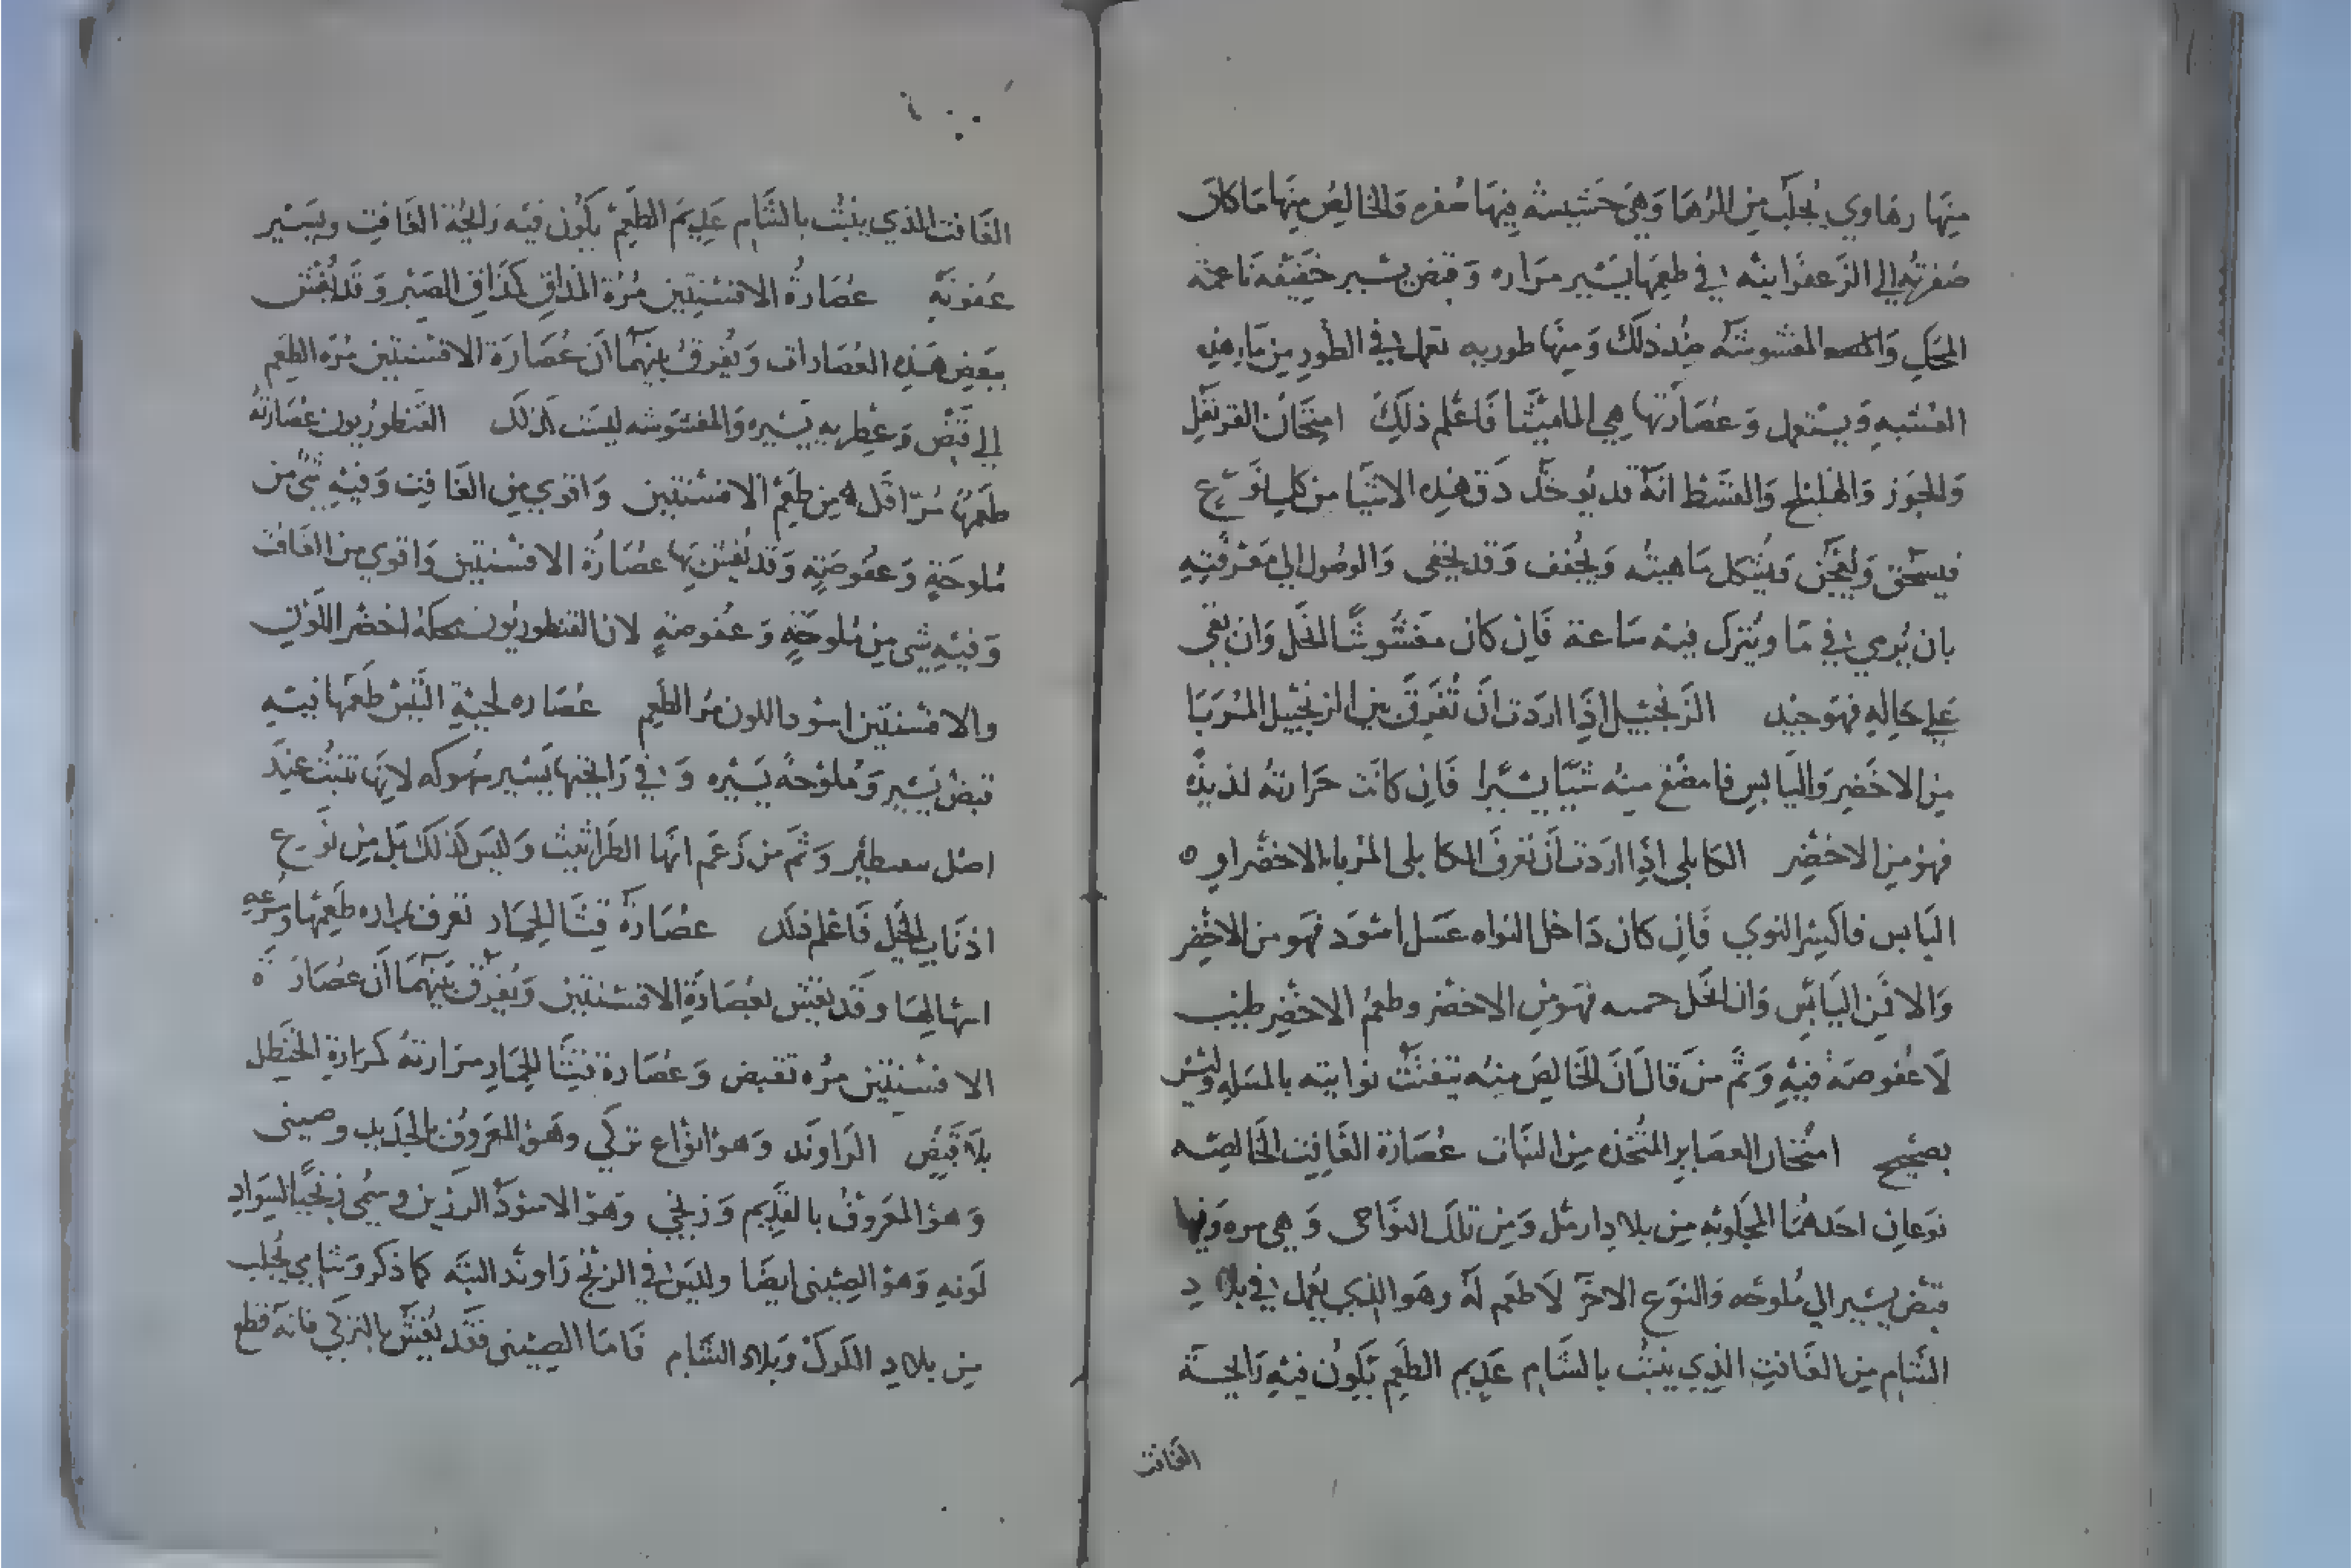 منها رهاوي يُجلب من الرها وهي حشيشه فيها صفره والخالص منها ما كان
صفرته الي الزعفرانيه في طعمها يسير مراره وقبض يسير خفيفه ناعمة
المحك والمغشوشه ضد ذلك ومنها طوريه تعمل في الطور من ماء هذه
العشبه ويستعمل وعصارتها هي الماميثا فاعلم ذلك امتحان القرنفل
والجوز والهليلج والقسط انه قد يوخذ دق هذه الاشيا من كل نوع
فيسحق ويعجن ويشكل ماهيته ويجفف وقد يخفي والوصول الي معرفته
بان يرمي في ما ويترك فيه ساعة فان كان مغشوشا انحل وان بقي
علي حاله فهو جيد الزنجبيل اذا اردت ان تفرق بين الزنجبيل المربا
من الاخضر واليابس فامضغ منه شيئا يسيرا فان كانت حرارته لذيذه
فهو من الاخضر الكابلي اذا اردت ان تعرف الكابلي المربا بالاخضر او ه
اليابس فاكسر النوي فان كان داخل النواه عسل اسود فهو من الاخضر
والا فمن اليابس وان انحل فهو من الاخضر وطعم الاخضر طيب
لا عفوصة فيه وثم من قال ان الخالص منه يتفتت نوايته بالمسله وليس
بصحيح امتحان العصاير المتخذه من النبات عصارة الغافت الخالصه
نوعان احدهما المجلوبه من بلاد ارمثل ومن تلك النواحي وهي مره وفيها
قبض يسير الي ملوحه والنوع الاخر لا طعم له وهو الذي يعمل في بلاد
الشام من الغافت الذي ينبت بالشام عديم الطعم يكون فيه رايحة
الغافت
الغافت الذي ينبت بالشام عديم الطعم يكون فيه رايحة الغافت ويسير
عفونه عصارة الافسنتين مرة المذاق كمذاق الصبر وقد تغش
ببعض هذه العصارات ويفرق بينهما ان عصارة الافسنتين مره الطعم
الي قبض وعطريه يسيره والمغشوشه ليست كذلك القنطوريون عصارته
طعمها مرا اقل من طعم الافسنتين واقوي من الغافت وفيه شي من
ملوحة وعفوصة وقد تغش بها عصارة الافسنتين واقوي من الغافت
وفيه شي من ملوحة وعفوصة لان القنطوريون محكه اخضر اللون
والافسنتين اسود اللون مر الطعم عصاره لحية التيس طعمها فيه
قبض يسير وملوحه يسيره وفي رايحتها يسير سهوكه لانها تنبت عند
اصل وثم من زعم انها الطراثيث وليس كذلك بل من نوع
اذناب الخيل فاعلم ذلك عصارة قثا الحمار تعرف بمراره طعمها وسرعه
اسهالها وقد تغش بعصارة الافسنتين ويفرق بينهما ان عصارة
الافسنتين مره تقبض وعصارة قثا الحمار مرارته كمرارة الحنظل
بلا قبض الراوند وهو انواع تركي وهو المعروف بالجديد وصيني
وهو المعروف بالقديم وزنجي وهو الاسود الرزين وسمي زنجيا لسواد
لونه وهو الصيني ايضا وليس في الزنج راوند البته كما ذكر وشامي يجلب
من بلاد الكرك وبلاد الشام فاما الصيني فقد يغش بالتركي فانه قطع